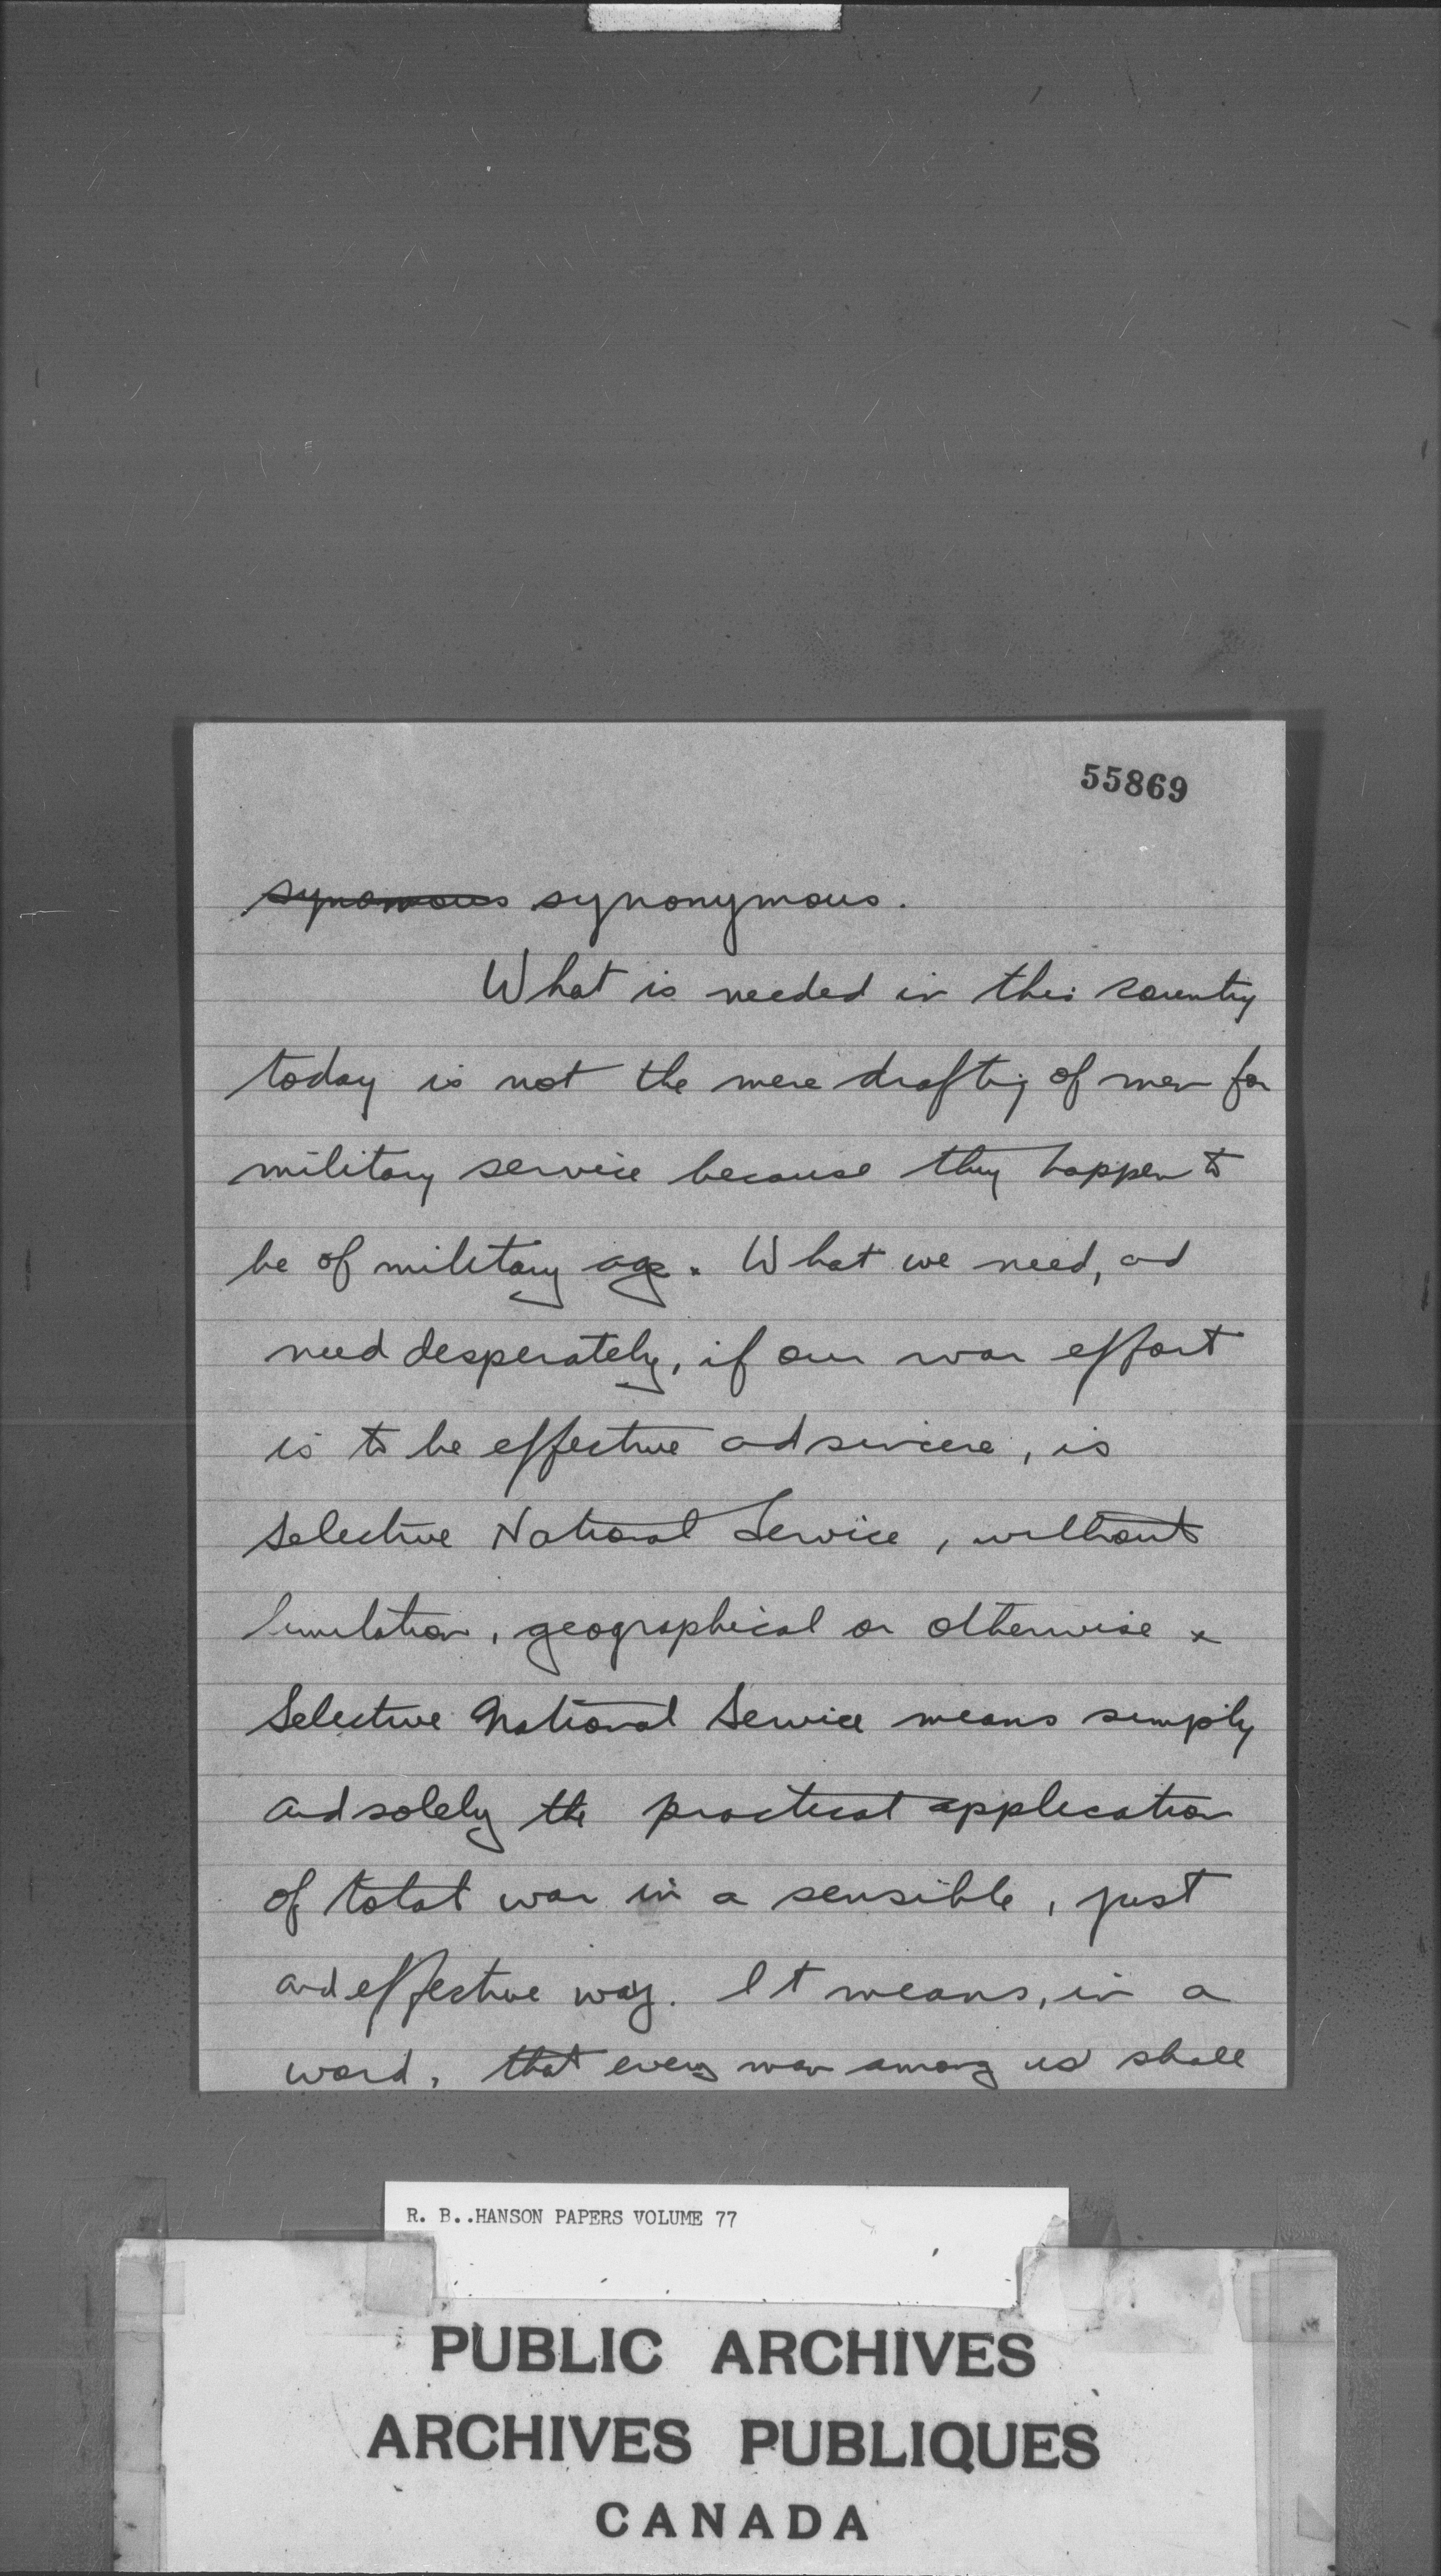 55869
synomous synonymous.
What is needed in this country
today is not the mere drafting of men for
military service because they happen to
be of military age. What we need, and
need desperately, if our war effort
is to be effective and sincere, is
Selective National Service, without
limitation, geographical or otherwise.
Selective National Service means simply
and solely the practical application
of total war in a sensible, just
and effective way. It means, in a
word, that every man among us shall
R. B..HANSON PAPERS VOLUME 77
PUBLIC ARCHIVES
ARCHIVES PUBLIQUES
CANADA